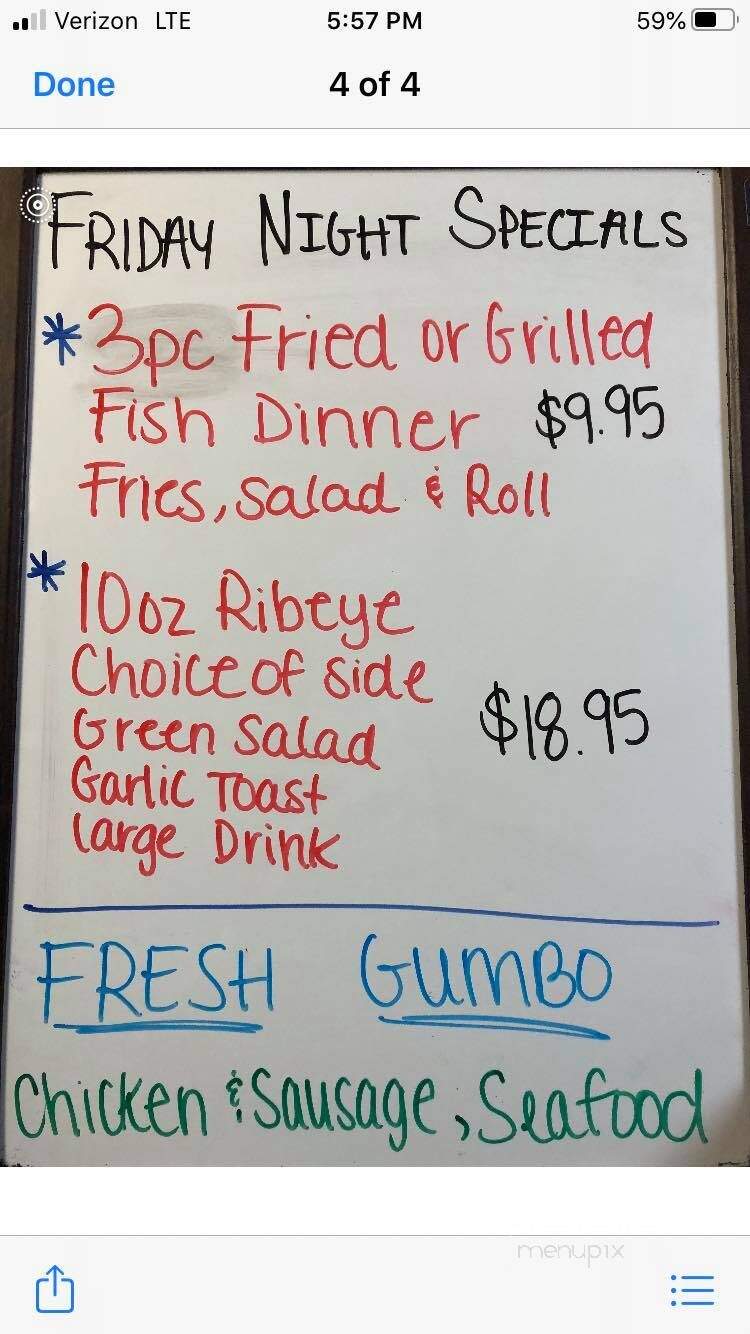 Verizon LTE 5:57 PM 59%
Done 4 of 4
FRIDAY NIGHT SPECIALS
* 3pc Fried or Grilled
Fish Dinner $9.95
Fries, Salad & Roll
* 10oz Ribeye
Choice of side
Green Salad $18.95
Garlic Toast
Large Drink
FRESH GUMBO
Chicken & Sausage, Seafood
menupix